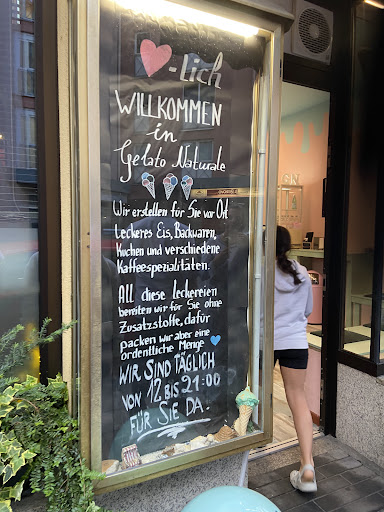 -lich
WILLKOMMEN
in
Gelato Naturale
Wir erstellen für Sie vor Ort
Leckeres Eis, Backwaren,
Kuchen und verschiedene
Kaffeespezialitäten.
All diese Leckereien
bereiten wir für Sie ohne
Zusatzstoffe, dafür
packen wir aber eine
ordentliche Menge
WIR SIND TÄGLICH
VON 12 BIS 21:00
FÜR SIE DA.